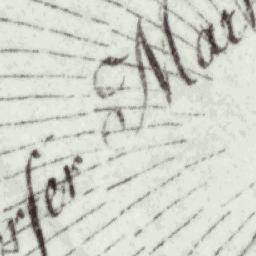 rſer Mar